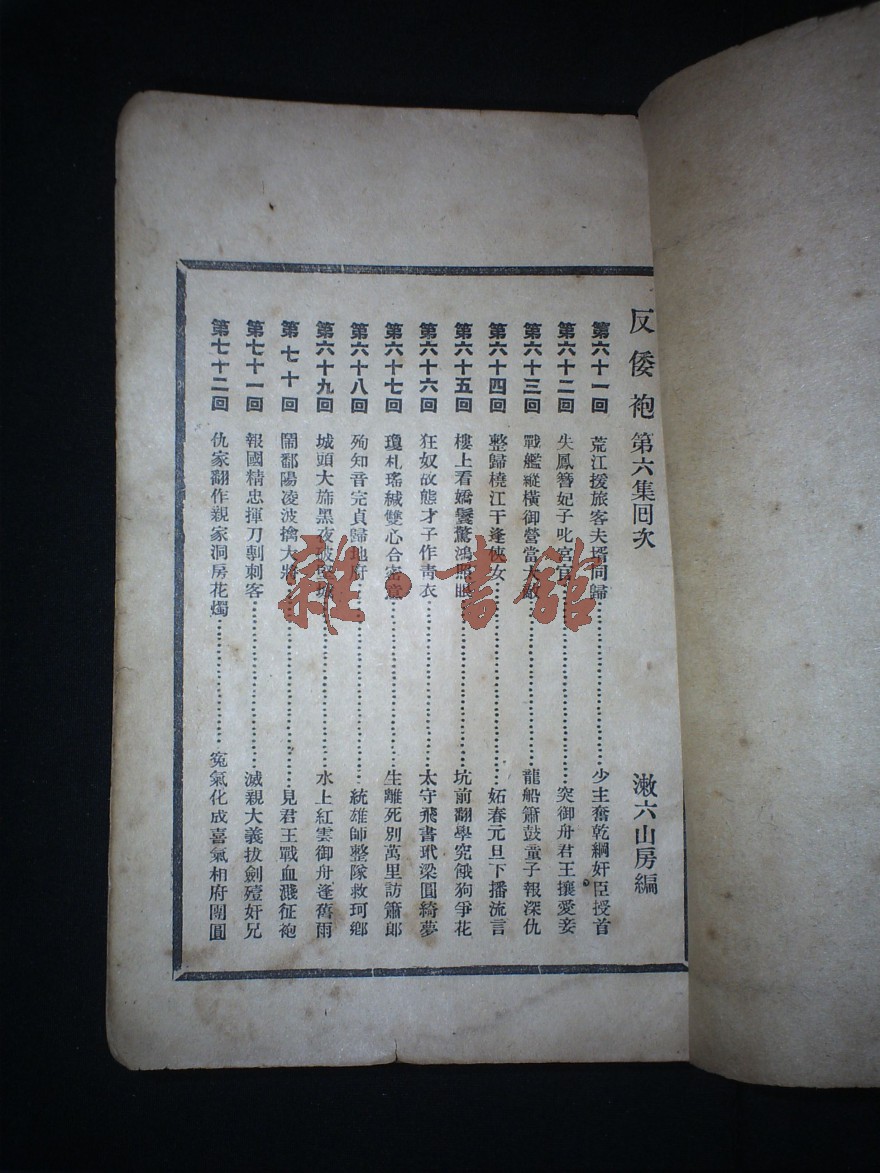 反倭袍第六集囘次 漱六山房編
第六十一回 荒江援旅客夫壻同歸……少主奮乾綱奸臣授首
第六十二回 失鳳簪妃子叱宮官……突御舟君王攘愛妾
第六十三回 戰艦縱橫御營當大敵……龍船簫鼓童子報深仇
第六十四回 整歸橈江干逢俠女……妬春元旦下播流言
第六十五回 樓上看嬌鬟驚鴻照眼……坑前翻學究餓狗爭花
第六十六回 狂奴故態才子作靑衣……太守飛書玳梁圓綺夢
第六十七回 瓊札瑤緘雙心合密意……生離死別萬里訪簫郎
第六十八回 殉知音完貞歸地府……統雄師整隊救珂鄕
第六十九回 城頭大旆黑夜破堅城……水上紅雲御舟逢舊雨
第七十回 鬧鄱陽凌波擒大將……見君王戰血濺征袍
第七十一回 報國精忠揮刀剸刺客……滅親大義拔劍殪奸兄
第七十二回 仇家翻作親家洞房花燭……寃氣化成喜氣相府團圓
雜·書館